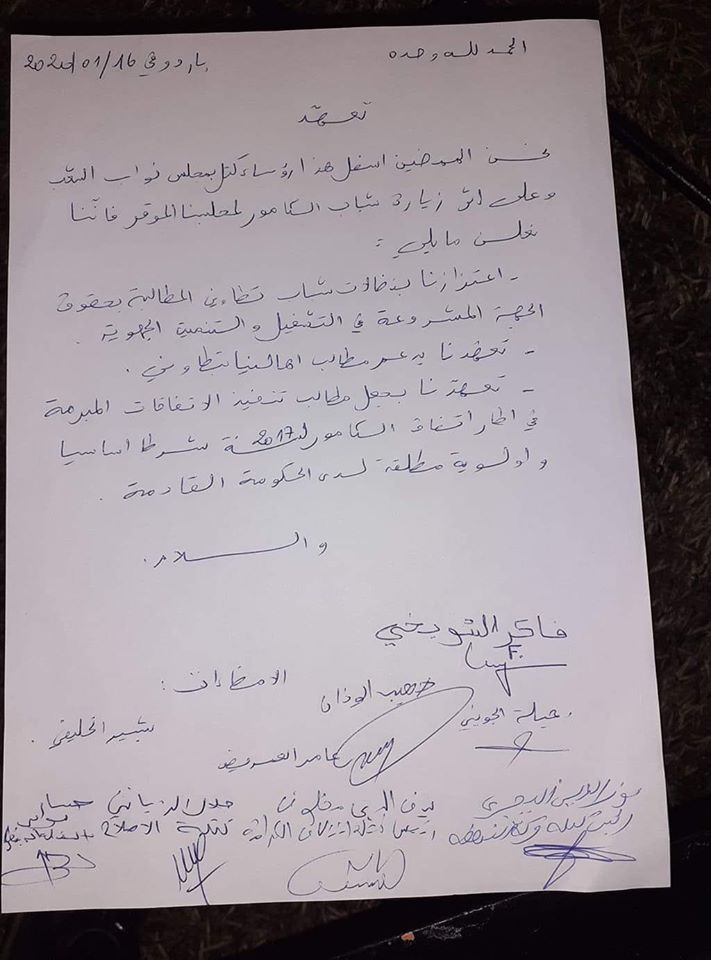 الحمد لله وحده
باردو في 16/01/2020
تعهّد
نحن الممضين اسفل هذا رؤساء كتل بمجلس نواب الشعب
وعلى اثر زيارة شباب الكامور لمجلسنا الموقر فاننا
نعلن ما يلي :
- اعتزازنا بنضالات شباب تطاوين المطالبة بحقوق
الجهة المشروعة في التشغيل والتنمية الجهوية .
- تعهدنا بدعم مطالب اهالينا بتطاوين .
- تعهدنا بجعل مطالب تنفيذ الاتفاقات المبرمة
في اطار اتفاق الكامور لسنة 2017 شرطا اساسيا
و اولوية مطلقة لدى الحكومة القادمة .
والسلام .
فاكر الشويخي
الامضاءات :
جميلة الجويني .
عامر العريض
بشير الخليفي .
نور الدين البحيري
رئيس كتلة حركة النهضة
سيف الدين مخلوف
رئيس كتلة ائتلاف الكرامة
كتلة الاصلاح